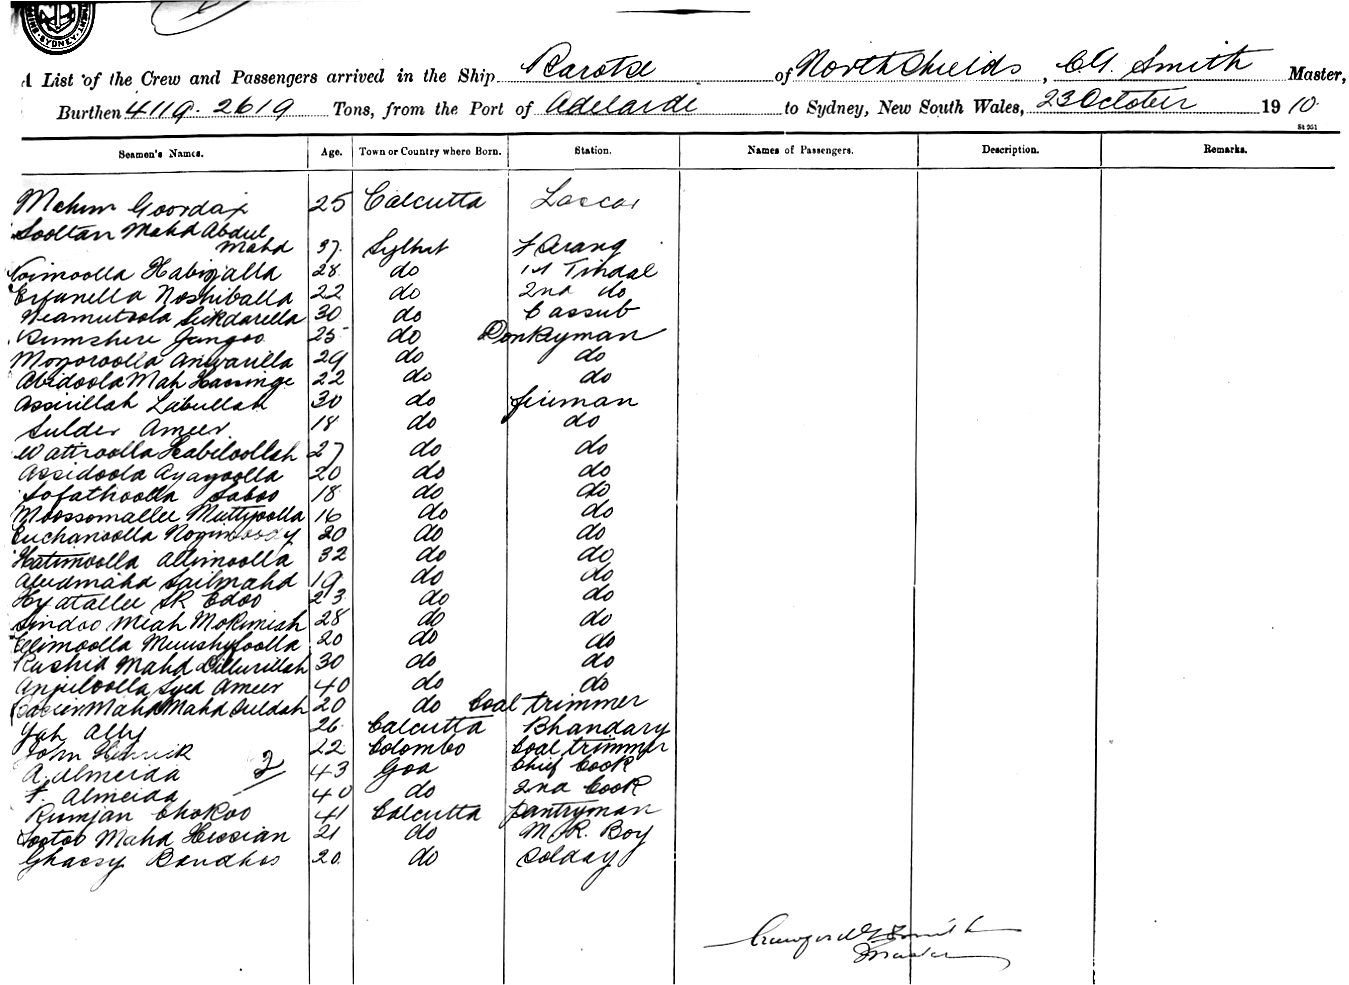 SYDNEY
A List of the Crew and Passengers arrived in the Ship Barotse of North Shields, C.G. Smith Master,
Burthen 4119. 2619 Tons, from the Port of Adelaide to Sydney, New South Wales, 23 October 1910.
St 251
Seamen's Names. Age. Town or Country where Born. Station. Names of Passengers. Description. Remarks.
Mehim Goordax 25 Calcutta Lascar
Sooltan Mahd Abdul
Mahd 37 Sylhet
Habizalla 28 do 1st Tindal
Noshiballa 22 do 2nd do
30 do Cassub
25 do Donkeyman
Anwarilla 29 do do
Abidoola Mah 22 do do
Assirillah Labullah 30 do fireman
Ameer 18 do do
Habiloollah 27 do do
Assidoola 20 do do
Sofathoolla Saboo 18 do do
Moossomallee Muttyoolla 16 do do
20 do do
Hatimoolla Allimoolla 32 do do
Sailmahd 19 do do
Hyatallee SK Edoo 23 do do
Sindoo Miah Mokimiah 28 do do
Elimoolla 20 do do
Rashid Mahd 30 do do
Syed Ameer 40 do do
Mahd Mahd 20 do Coal trimmer
Yah Ally 26 Calcutta Bhandary
John 22 Colombo Coal trimmer
A. Almeida 2 43 Goa Chief Cook
F. Almeida 40 do 2nd Cook
Rumjan Chokoo 41 Calcutta pantryman
Mahd Hossian 21 do M. R. Boy
20 do
Crawford G Smith
Master